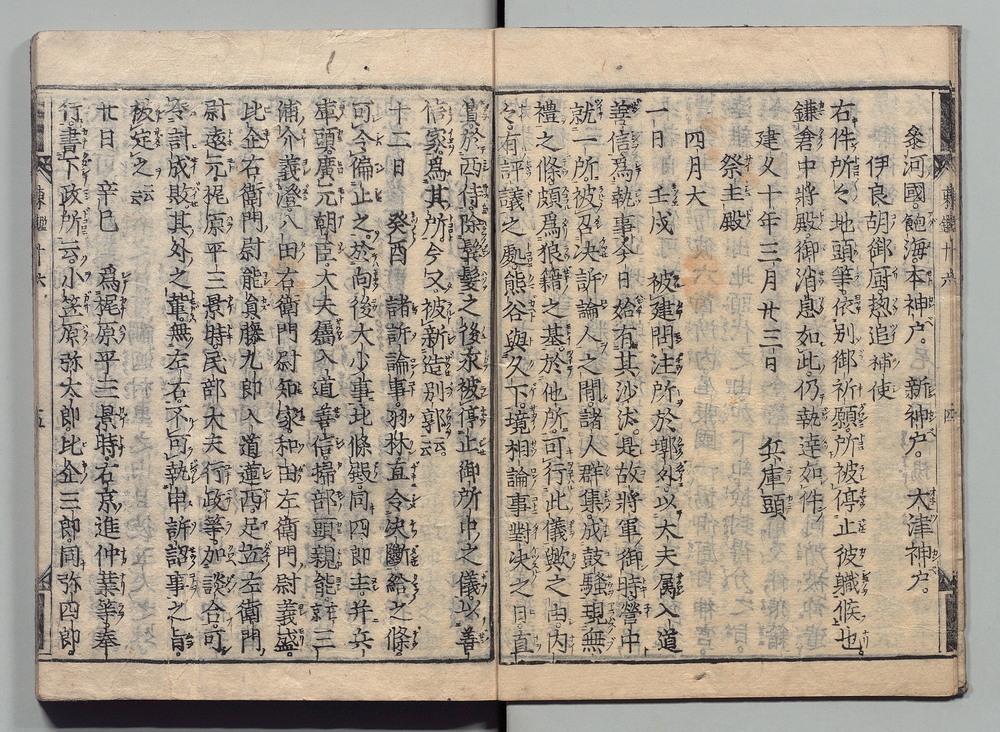 參河國。飽海本神戶。新神戶。大津神戶。
伊良胡御厨惣追補使
右件所々地頭等。依別御祈願。所被停止彼職候也。
鎌倉中將殿御消息如此。仍執達如件。
建久十年三月廿三日　兵庫頭
祭主殿
四月大
一日　壬戌　被建問注所於墎外。以大夫属入道
善信爲執事。今日始有其沙汰。是故將軍御時。營中
就一所。被召决訴論人之間。諸人群集。成鼓騷。現無
禮之條。頗爲狼籍之基。於他所。可行此儀歟之由。内
々有評議之處。熊谷與久下境相論事。對决之日。直
實於西侍除鬢髮之後。永被停止御所中之儀。以善
信家。爲其所。今又被新造別郭云云
十二日　癸酉　諸訴論事。羽林直令决斷給之條。
可令停止之。於向後大少事。北條殿。同四郎主。并兵
庫頭廣元朝臣。大夫属入道善信。掃部頭親能在京三
浦介義澄。八田右衛門尉知家。和田左衛門尉義盛。
比企右衛門尉能員。藤九郎入道蓮西。足立左衛門
尉遠元。梶原平三景時。民部大夫行政等。加談合。可
令計成敗。其外之輩。無左右不可執申訴訟事之旨。
被定之云云
廿日　辛巳　爲梶原平三景時。右京進仲業等奉
行。書下政所云。小笠原弥太郎。比企三郎。同弥四郎。
東鑑十六
四
東鑑十六
五